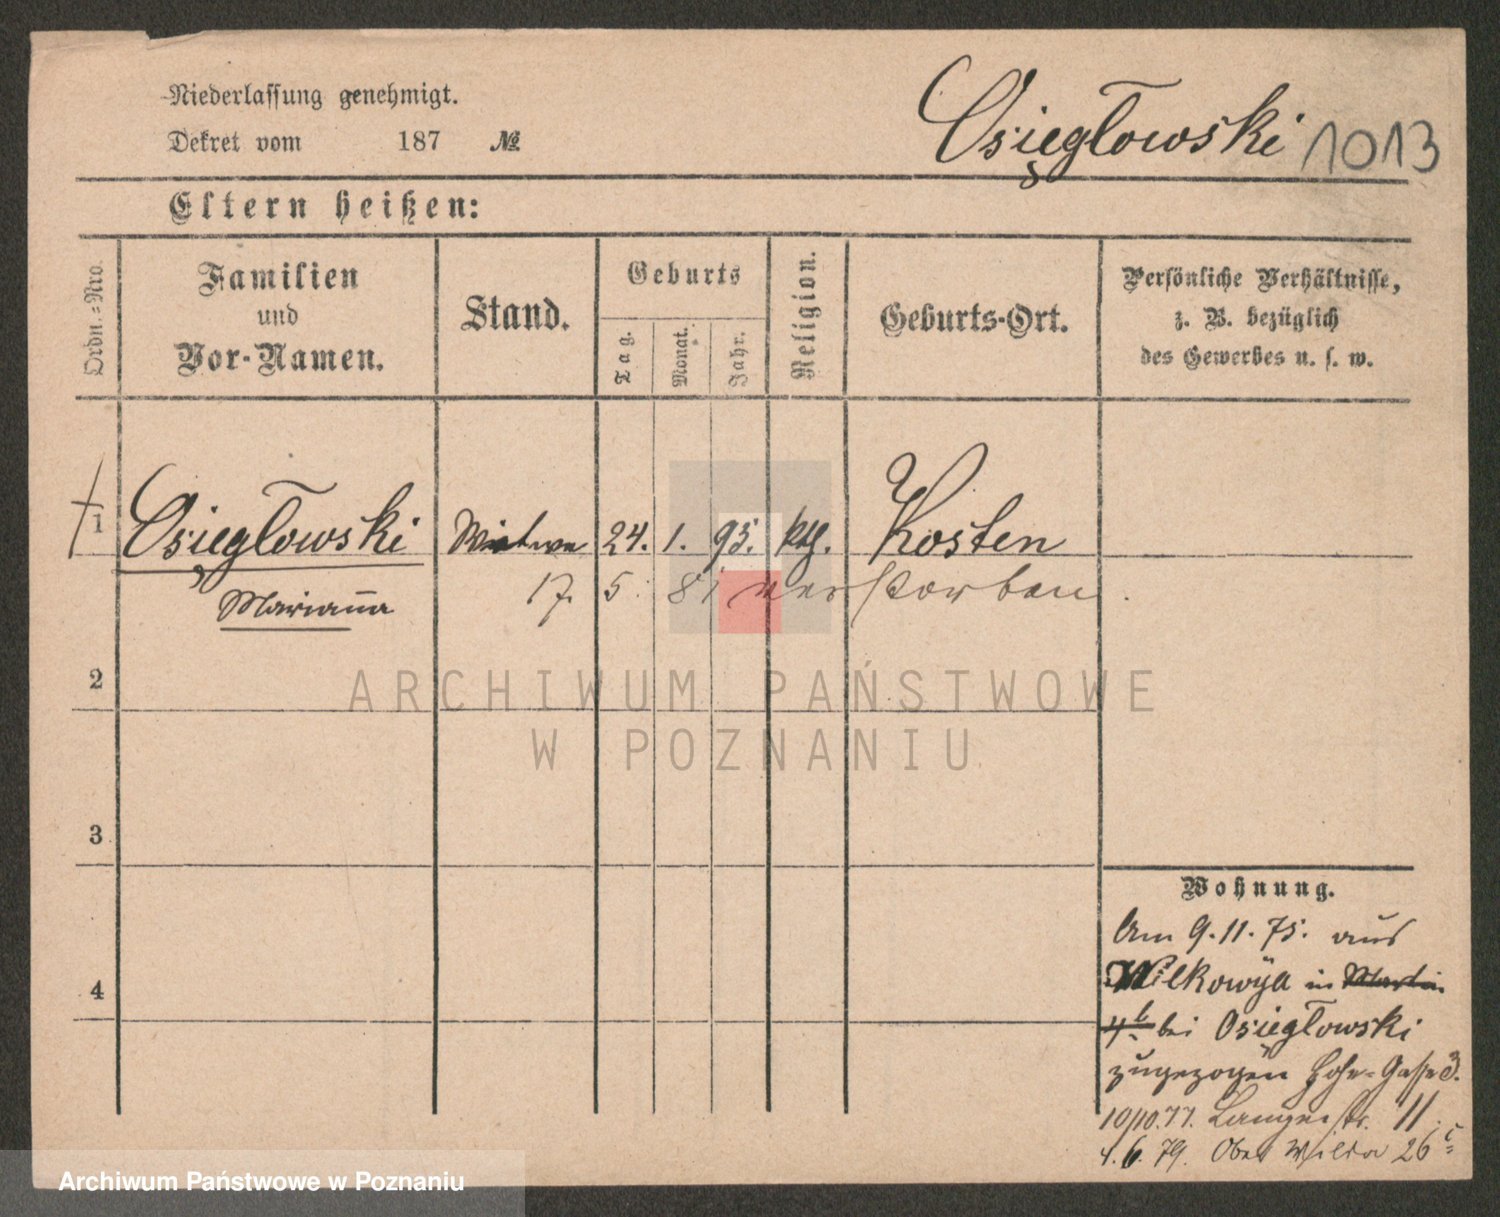 Niederlassung genehmigt.
Dekret vom 187 №
Osięgłowski 1013
Eltern heißen:
Ordn.=Nro.
Familien
und
Vor-Namen.
Stand.
Geburts
Tag.
Monat.
Jahr.
Religion.
Geburts-Ort.
Persönliche Verhältnisse,
z. B. bezüglich
des Gewerbes u. s. w.
1 Osięgłowski Wittwe 24. 1. 95. kth. Kosten
Marianna 17. 5. 81 verstorben.
2
3
4
Wohnung.
Am 9.11.75. aus
Wilkowÿa in Martin
4b bei Osięgłowski
zugezogen Hohe-Gasse 3.
10/10.77. Langestr. 11.
4.6.79. Ober Wilda 26c
ARCHIWUM PAŃSTWOWE
W POZNANIU
Archiwum Państwowe w Poznaniu